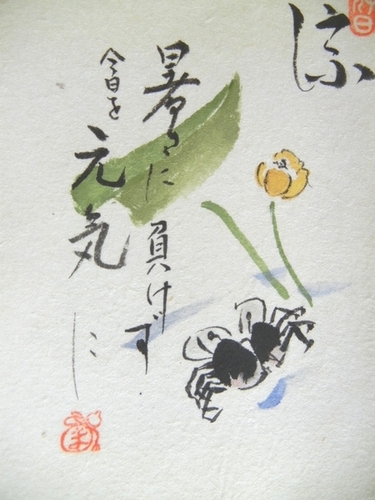 涼
暑さに負けず
今日を元気に